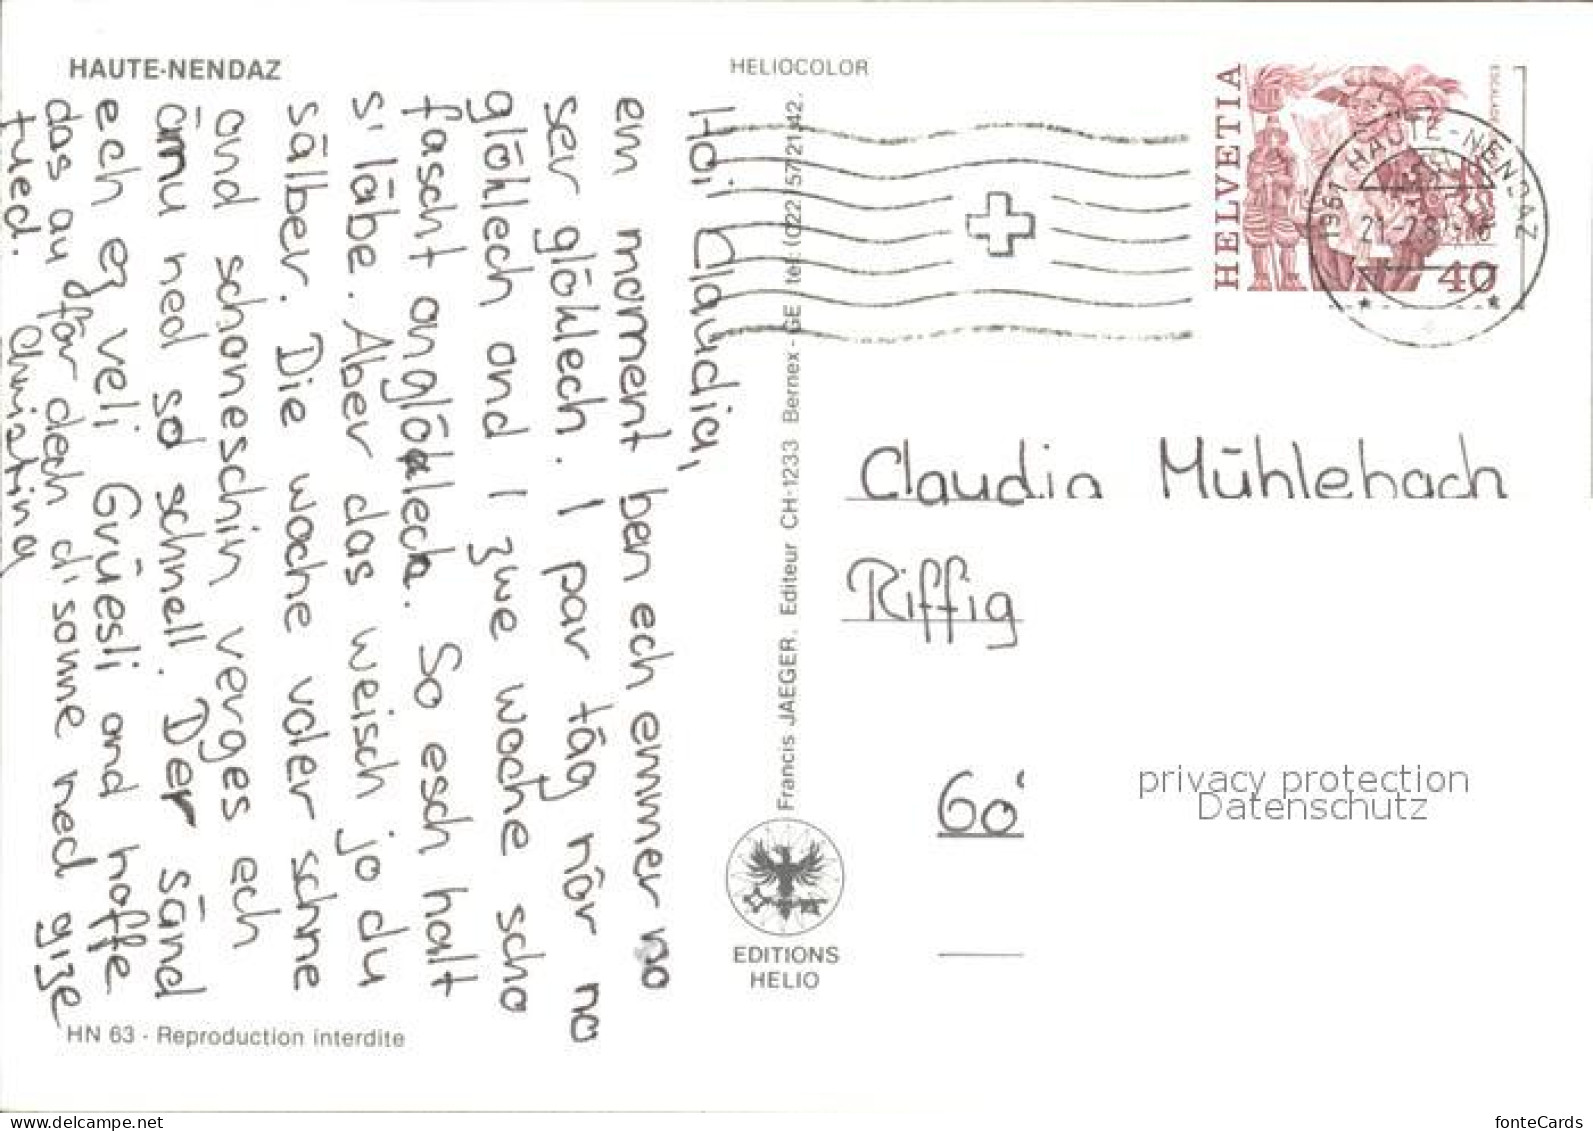 HAUTE-NENDAZ
HELIOCOLOR
HELVETIA
40
1961 HAUTE-NENDAZ
Hoi Claudia,
em moment ben ech emmer no
ser glöhlech. I par täg nör no
glöhlech and I zwe woche scho
fascht onglöhlech. So esch halt
s'läbe. Aber das weisch jo du
sälber. Die woche voler schne
ond schoneschin verges ech
ämu ned so schnell. Der sänd
ech er veli Grüesli ond hoffe
das au för dech d'sonne ned gize
tued. Christina
Francis JAEGER, Editeur CH-1233 Bernex-GE tel. (022 57 21 42.
Claudia Mühlebach
Riffig
60
privacy protection
Datenschutz
EDITIONS
HELIO
HN 63 - Reproduction interdite
www.delcampe.net
fonteCards